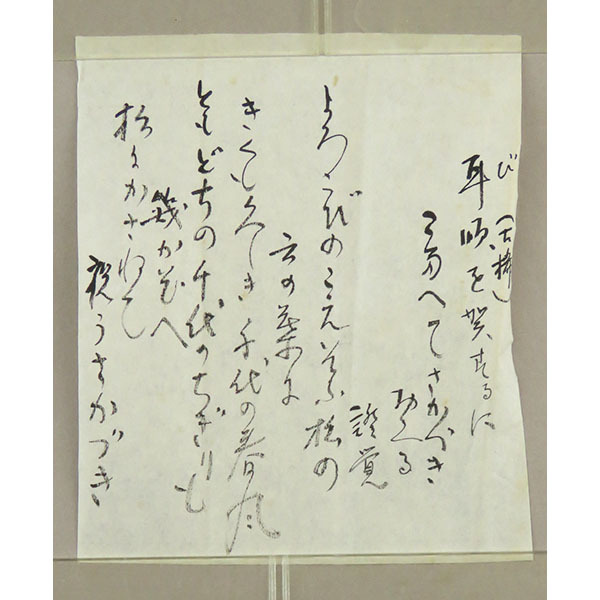 耳順を賀するに
そへてさかづき
おくる
證覚
よろこびのこゑそふ松の
言の葉に
きくも久しき千代の春風
ともどちの千代のちぎりも
幾かへ
松にかさねて
祝うさかづき